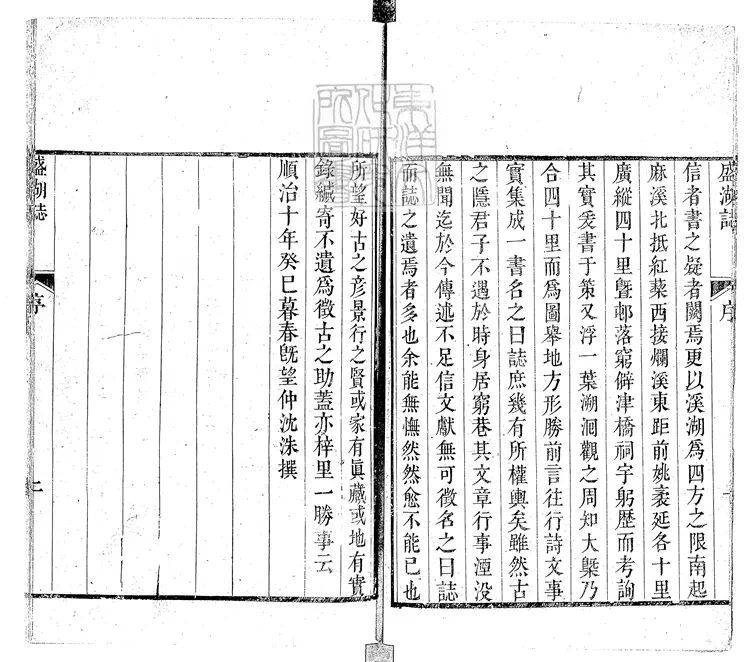 盛湖誌
序
信者書之疑者闕焉更以溪湖爲四方之限南起
麻溪北抵紅蔾西接爛溪東距前姚袤延各十里
廣縱四十里暨邨落窮僻津橋祠宇躬歷而考詢
其實爰書于策又浮一葉溯洄觀之周知大槩乃
合四十里而爲圖舉地方形勝前言往行詩文事
實集成一書名之曰誌庶幾有所權輿矣雖然古
之隱君子不遇於時身居窮巷其文章行事湮没
無聞迄於今傳述不足信文獻無可徵名之曰誌
而誌之遺焉者多也余能無憮然然愈不能已也
所望好古之彦景行之賢或家有眞藏或地有實
錄緘寄不遺爲徵古之助蓋亦梓里一勝事云
順治十年癸巳暮春旣望仲沈洙撰
盛湖誌
序
二